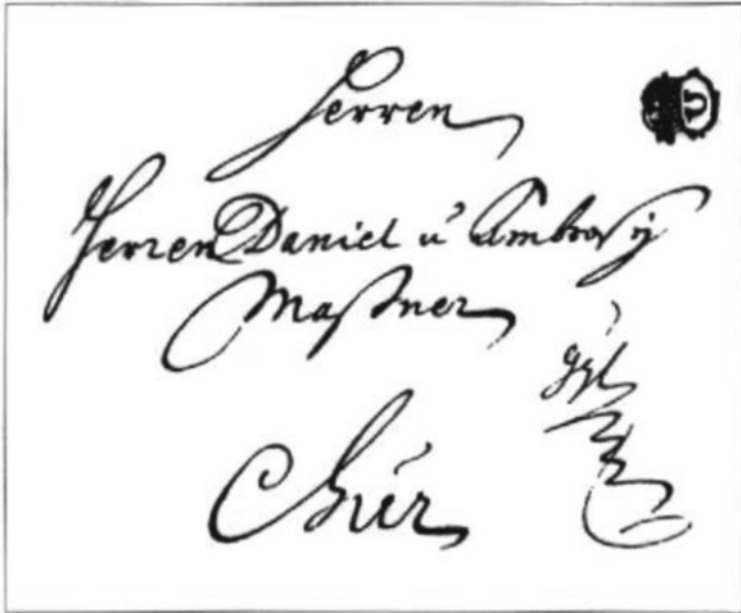 Herren
Herren Daniel u Ambrosÿ
Maßner
Chur